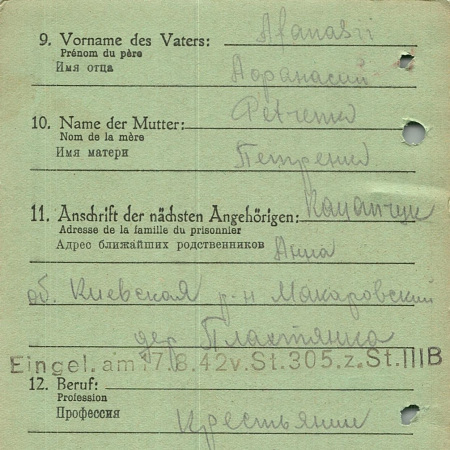 9. Vorname des Vaters: Afanasii
Prénom du père
Имя отца Афанасий
10. Name der Mutter: Petrenko
Nom de la mère
Имя матери Петренко
11. Anschrift der nächsten Angehörigen:
Adresse de la famille du prisonnier
Адрес ближайших родственников Анна
об. Киевская р-н Макаровский
дер. Плахтянка
Eingel. am 17.8.42 v. St. 305. z. St. III B
12. Beruf:
Profession
Профессия Крестьянин